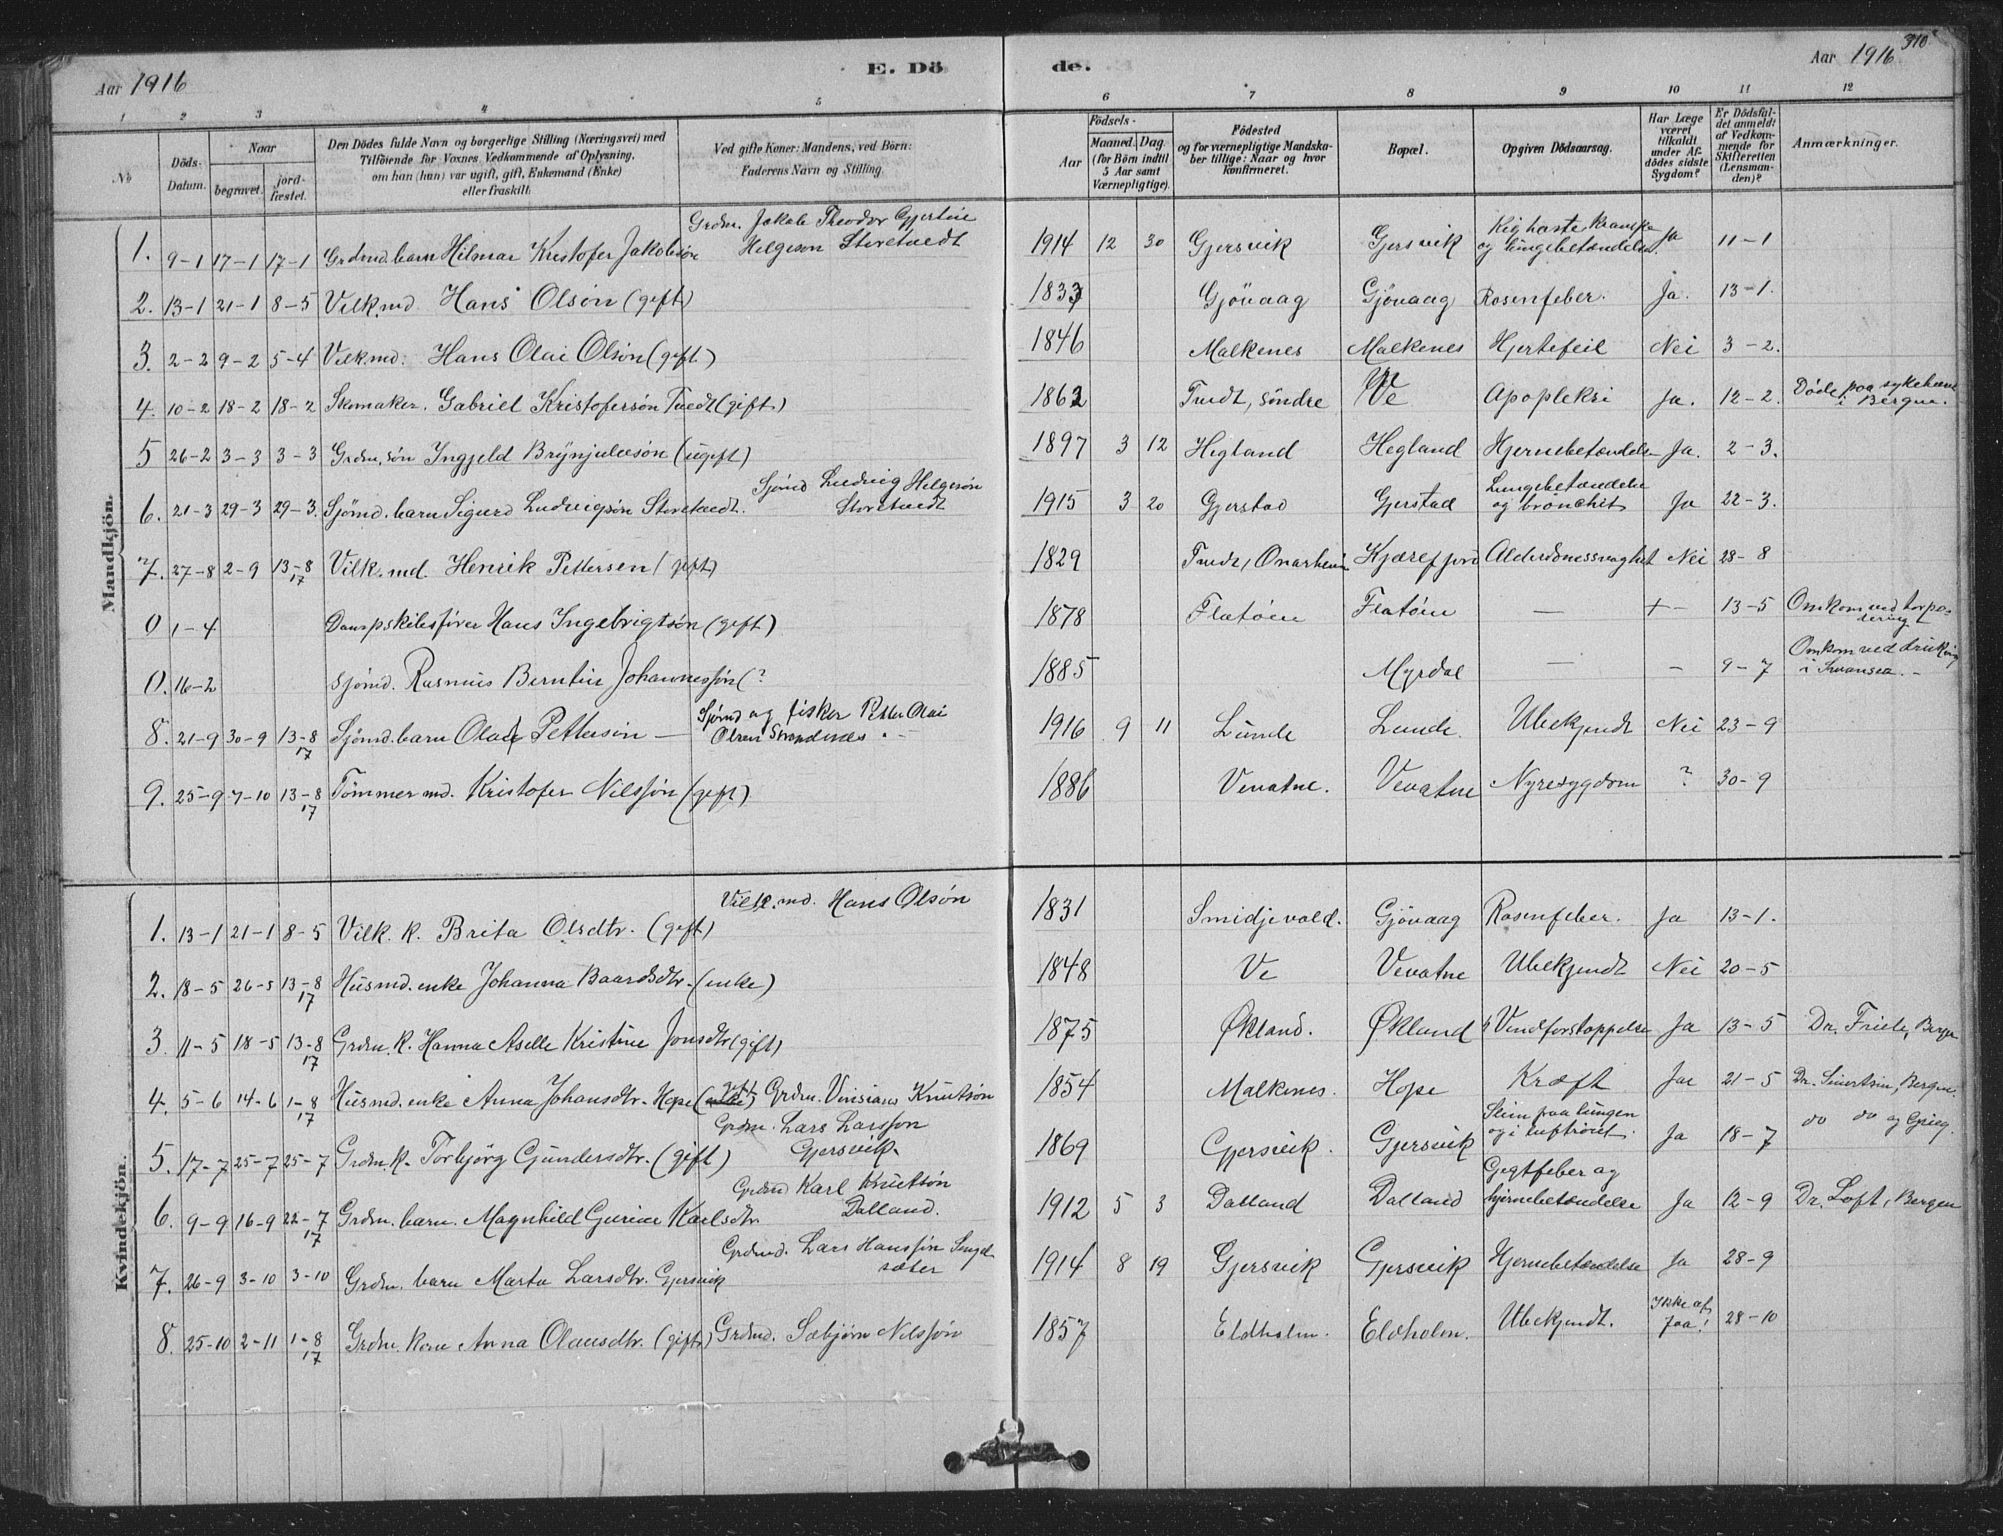 Aar 1916 E. Dö de. Aar 1916 310
1 2 3 4 5 6 7 8 9 10 11 12
No
Döds-Datum.
Naar
begravet. jordfæstet.
Den Dödes fulde Navn og borgerlige Stilling (Næringsvei) med
Tilföiende for Voxnes Vedkommende af Oplysning,
om han (hun) var ugift, gift, Enkemand (Enke)
eller fraskilt.
Ved gifte Koner: Mandens, ved Börn:
Faderens Navn og Stilling.
Födsels-
Aar Maaned. Dag.
(for Börn indtil
5 Aar samt
Værnepligtige).
Födested
og for værnepligtige Mandskaber tillige: Naar og hvor
konfirmeret.
Bopæl.
Opgiven Dödsaarsag.
Har Læge
været
tilkaldt
under Afdödes sidste
Sygdom?
Er Dödsfaldet anmeldt
af Vedkommende for
Skifteretten
(Lensmanden)?
Anmærkninger.
Mandkjön.
1. 9-1 17-1 17-1 Grdmd. barn Hilmar Kristofer Jakobsøn Grdm. Jakob Theodor Gjertine Helgeson Storetvedt 1914 12 30 Gjersvik Gjersvik Kighoste og lungebetændelse. Ja 11-1
2. 13-1 21-1 8-5 Vilk.md Hans Olsön (gift) 1833 Gjövaag Gjövaag Rosenfeber. Ja. 13-1.
3. 2-2 9-2 5-4 Vilk md: Hans Olai Olsön (gift) 1846 Malkenes Malkenes Hjertefeil Nei 3-2.
4. 10-2 18-2 18-2 Skomaker. Gabriel Kristofersön Tvedt (gift) 1862 Tvedt, söndre Ve Apopleksi Ja. 12-2. Döde paa sykehuse i Bergen.
5 26-2 3-3 3-3 Grdm. søn Ingjeld Brynjulvsön (ugift) 1897 3 12 Hegland Hegland Hjernebetændelse Ja. 2-3.
6. 21-3 29-3 29-3. Sjömd. barn Sigurd Ludvigsön Storetvedt. Sjömd Ludvig Helgesön Storetvedt 1915 3 20 Gjerstad Gjerstad Lungebetændelse og bronchit Ja 22-3.
7. 27-8 2-9 13-8 17 Vilk. md. Henrik Pettersen (gift) 1829 Tvedt, Onarheim Kjærefjord Alderdomssvaghet Nei 28-8
0 1-4 Dampskibsfører Hans Ingebrigtsøn (gift) 1878 Flatöen Flatöen — +- 13-5 Omkom ved torpedering
0. 16-2 Sjömd. Rasmus Berntin Johannessön (? 1885 Myrdal — - 9-7 Omkom ved drukning i Swansea. -
8. 21-9 30-9 13-8 17 Sjömd. barn Olai Pettersön — Sjömd og fisker Petter Olai Olsen Strandenes. - 1916 9 11 Lunde Lunde. Ubekjendt Nei 23-9
9. 25-9 7-10 13-8 17 Tömmermd. Kristofer Nilssön (gift) 1886 Vevatne. Vevatne Nyresygdom ? 30-9
Kvindekjön.
1. 13-1 21-1 8-5 Vilk. k. Brita Olsdtr. (gift) Vilk.md. Hans Olsön 1831 Smidjevold. Gjövaag Rosenfeber. Ja 13-1.
2. 18-5 26-5 13-8 17 Husmd. enke Johanna Baardsdtr. (enke) 1848 Ve Vevatne Ubekjendt Nei 20-5
3. 11-5 18-5 13-8 17 Grdm. k. Hanna Aselle Kristine Jonsdtr (gift) 1875 Økland. Økland Vendforstoppelse Ja 13-5 Dr. Friele, Bergen
4. 5-6 14-6 1-8 17 Husmd. enke Anna Johansdtr. Hope (gift) Grdm. Vinsians Knutsön 1854 Malkenes. Hope Kræft Ja 21-5 Dr. Sivertsen, Bergen.
5. 17-7 25-7 25-7 Grdm. k. Torbjörg Gundersdtr. (gift) Grdm. Lars Larsson Gjersvik. 1869 Gjersvik. Gjersvik Slim paa lungen og i luftröret. Ja 18-7 do do og Grieg.
6. 9-9 16-9 22-7 17 Grdm. barn. Magnhild Gurine Karlsdtr Grdmd Karl Knutsön Dalland. 1912 5 3 Dalland Dalland Gigtfeber og hjernebetændelse Ja 12-9 Dr. Loft, Bergen
7. 26-9 3-10 3-10 Grdm. barn Marta Larsdtr. Gjersvik Grdmd. Lars Hanssön sæter 1914 8 19 Gjersvik Gjersvik Hjernebetændelse Ja 28-9
8. 25-10 2-11 1-8 17 Grdm. kone Anna Olausdtr. (gift) Grdmd. Sæbjörn Nilssön 1857 Eldholm. Eldholm. Ubekjendt. Ikke af paa! 28-10